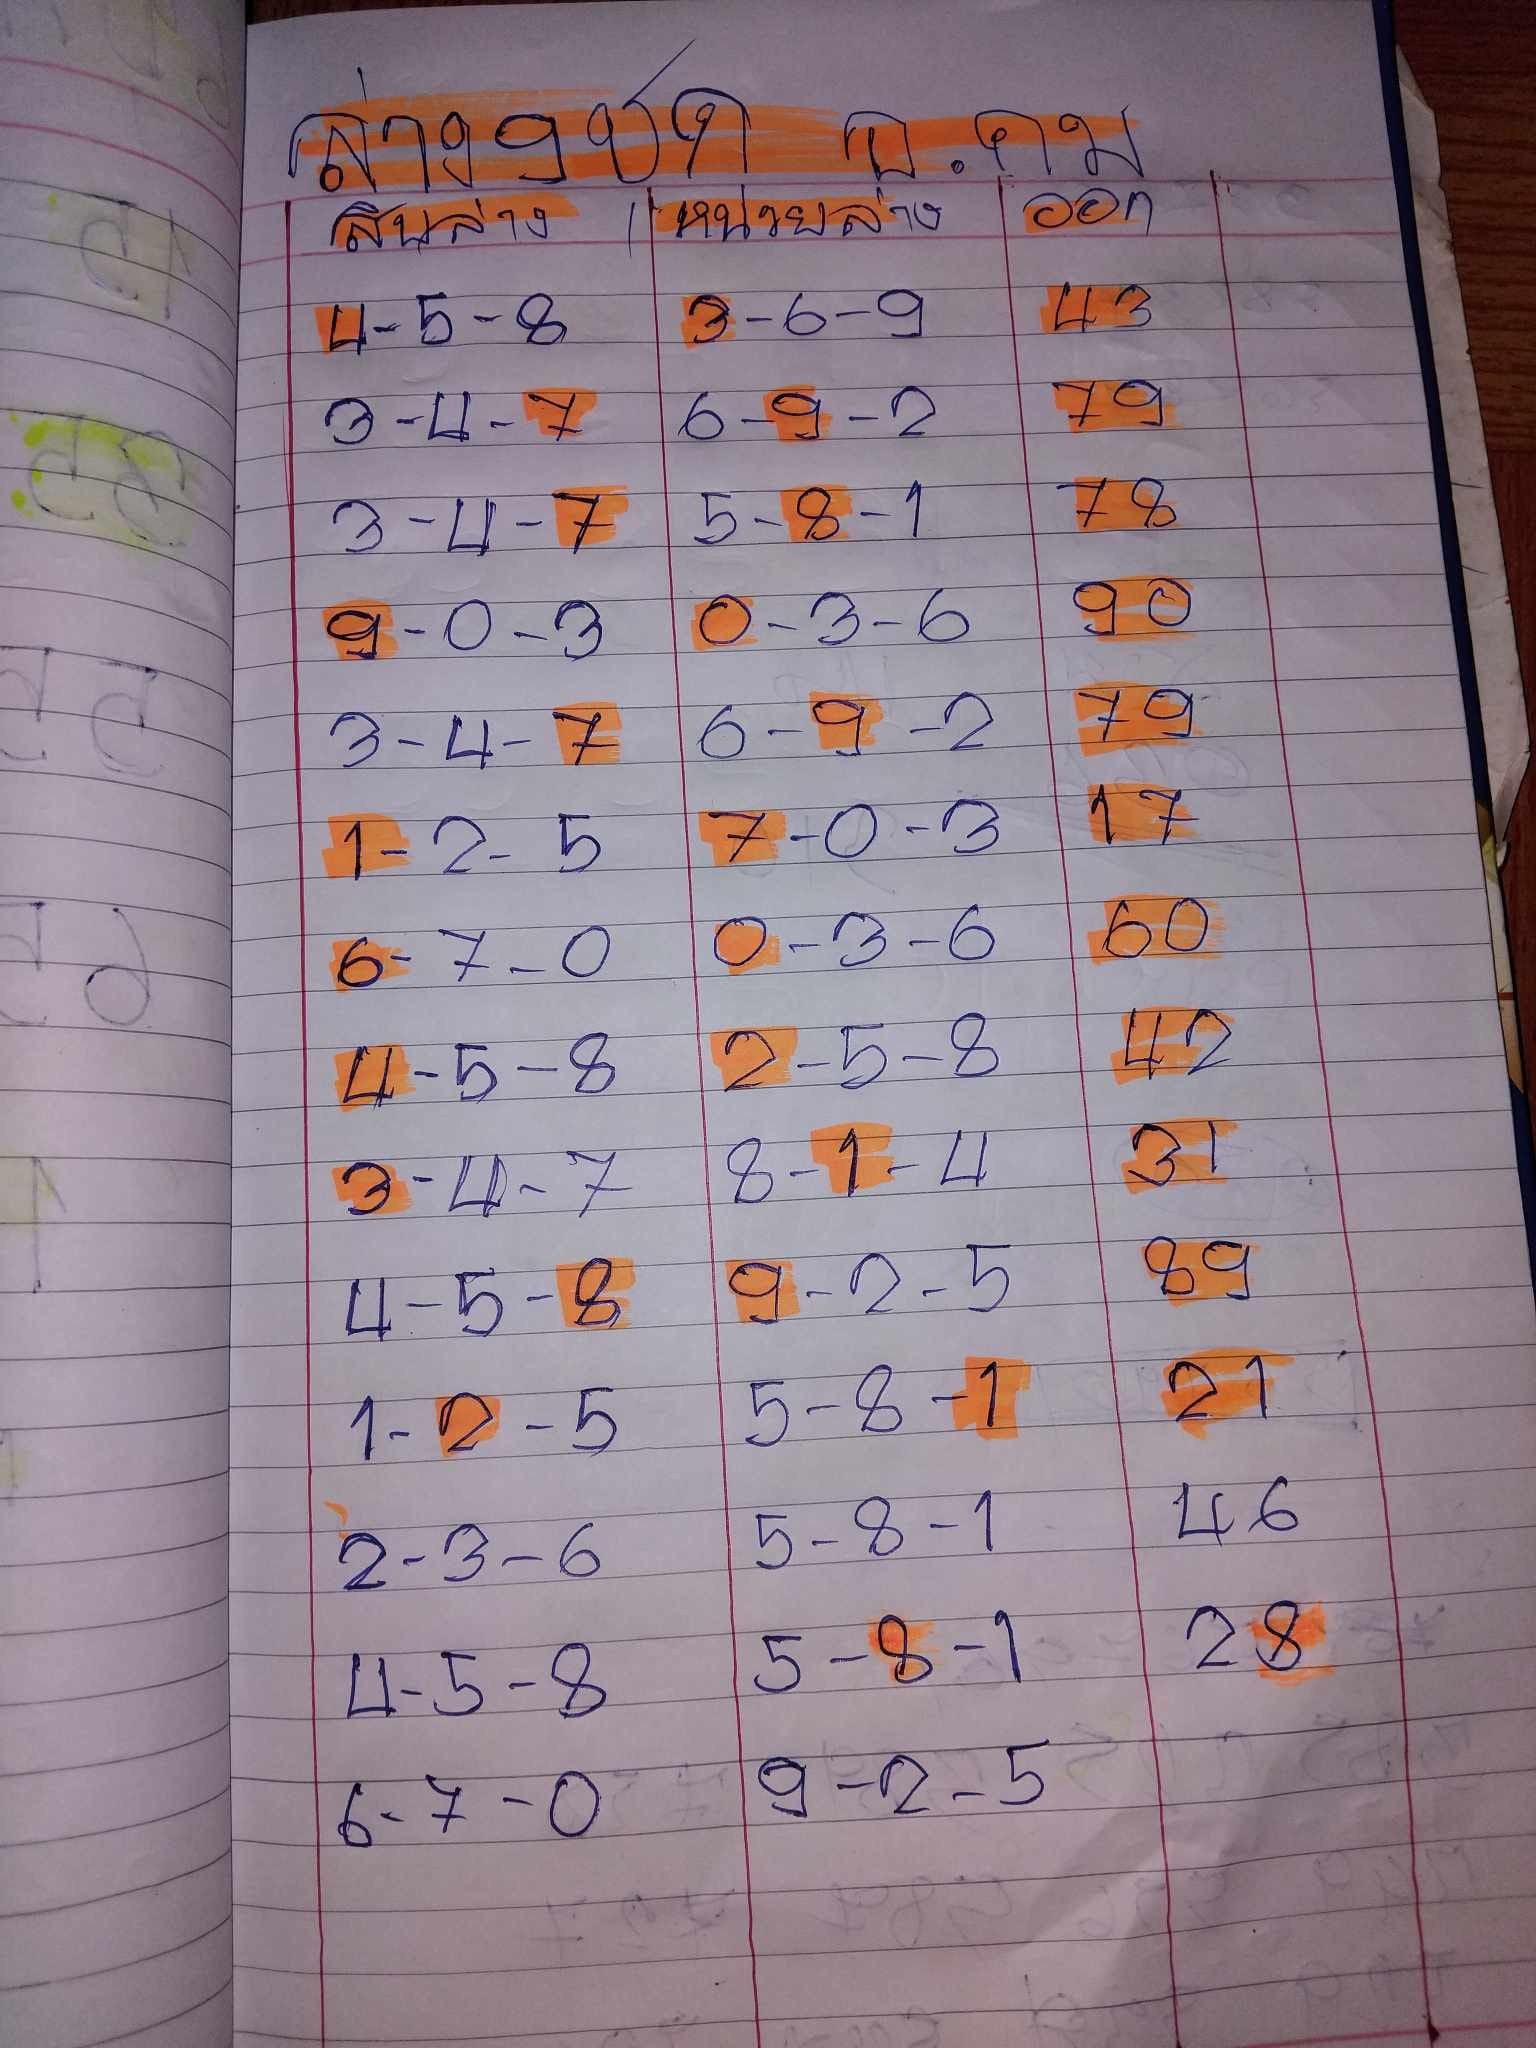 ล่าง9ชุด อ.คม
สิบล่าง | หน่วยล่าง ออก
4-5-8 3-6-9 43
3-4-7 6-9-2 79
3-4-7 5-8-1 78
9-0-3 0-3-6 90
3-4-7 6-9-2 79
1-2-5 7-0-3 17
6-7-0 0-3-6 60
4-5-8 2-5-8 42
3-4-7 8-1-4 31
4-5-8 9-2-5 89
1-2-5 5-8-1 21
2-3-6 5-8-1 46
4-5-8 5-8-1 28
6-7-0 9-2-5